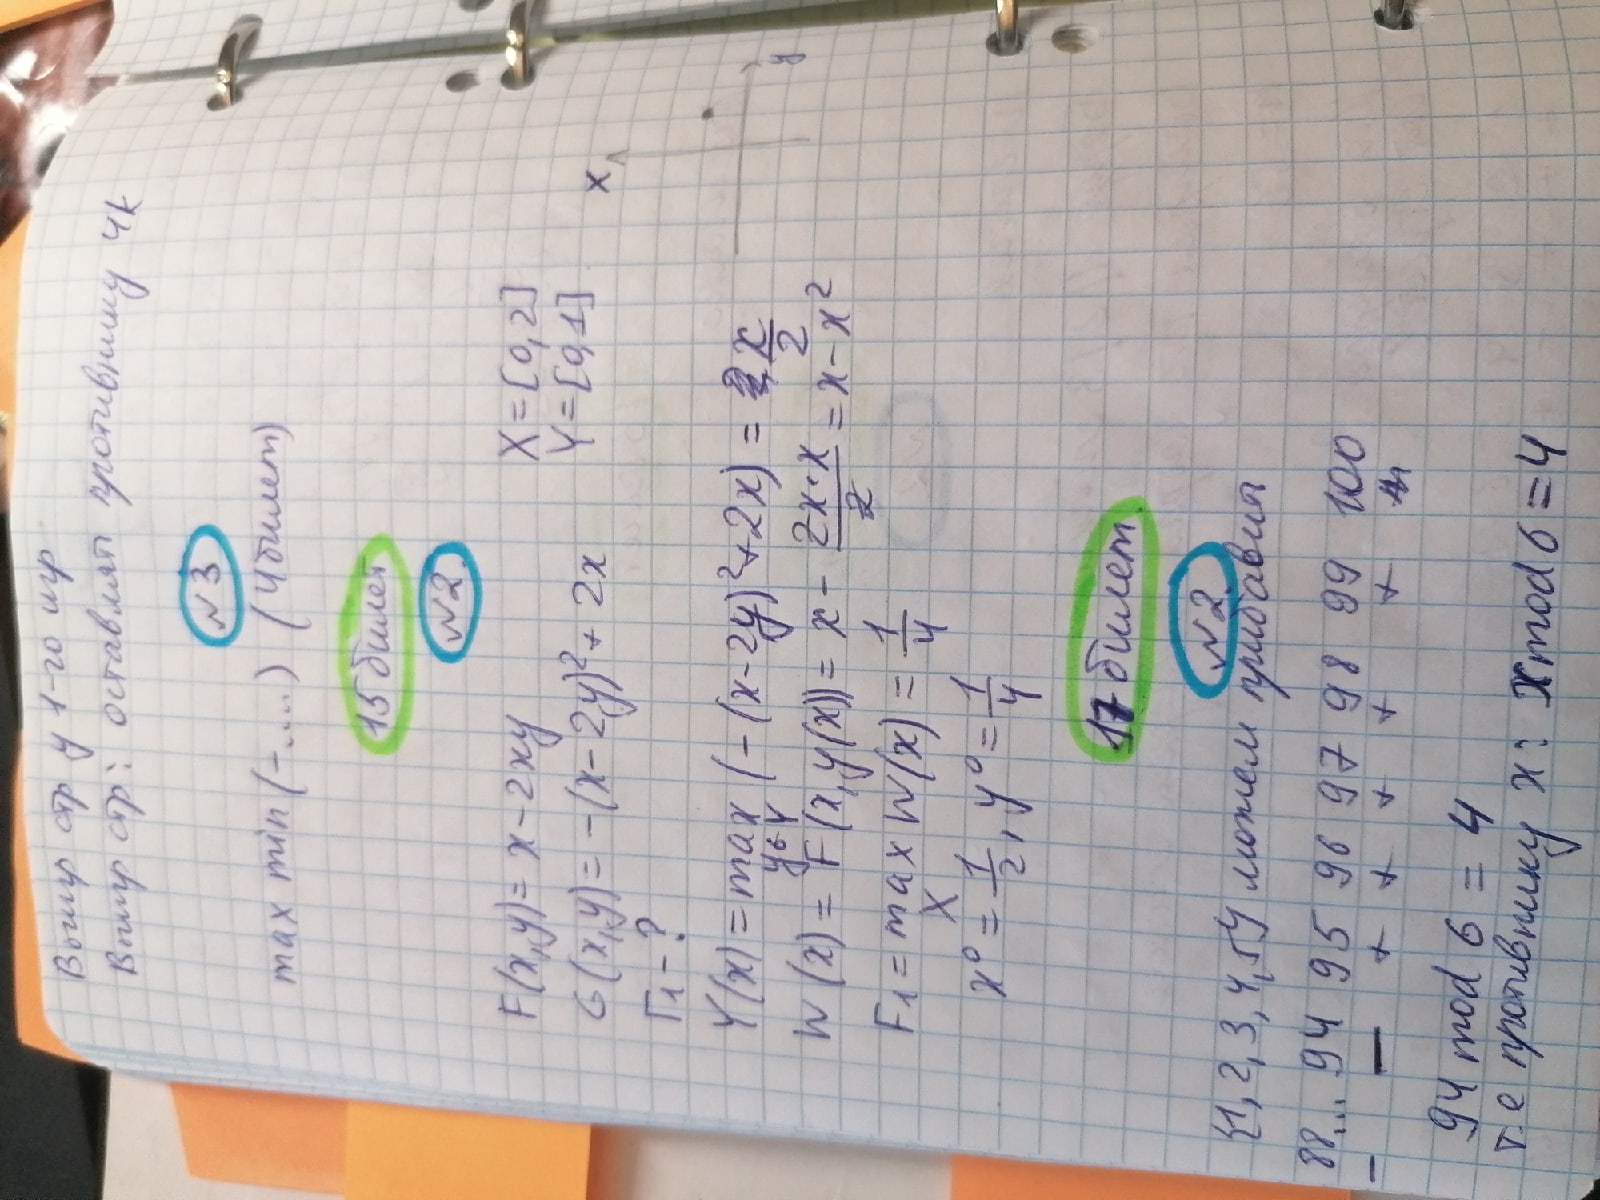 Выигр стр у 1-го игр
Выигр стр: оставлят противнику 4k
№3
max min (-....) (4билет)
15 билет
№2
F(x,y)= x - 2xy X=[0,2]
G(x,y)= -(x-2y)²+ 2x Y=[0,1]
Г₁ - ?
x
y
Y(x)=max (-(x-2y)²+2x) = x/2
y∈Y
W(x)= F(x,y(x))= x - 2x·x/2 = x - x²
F₁ = max W(x) = 1/4
X
x⁰ = 1/2, y⁰ = 1/4
17 билет
№2
{1,2,3,4,5} можем прибавит
88... 94 95 96 97 98 99 100
- - + + + + +
94 mod 6 = 4
т.е противнику x: x mod 6 = 4